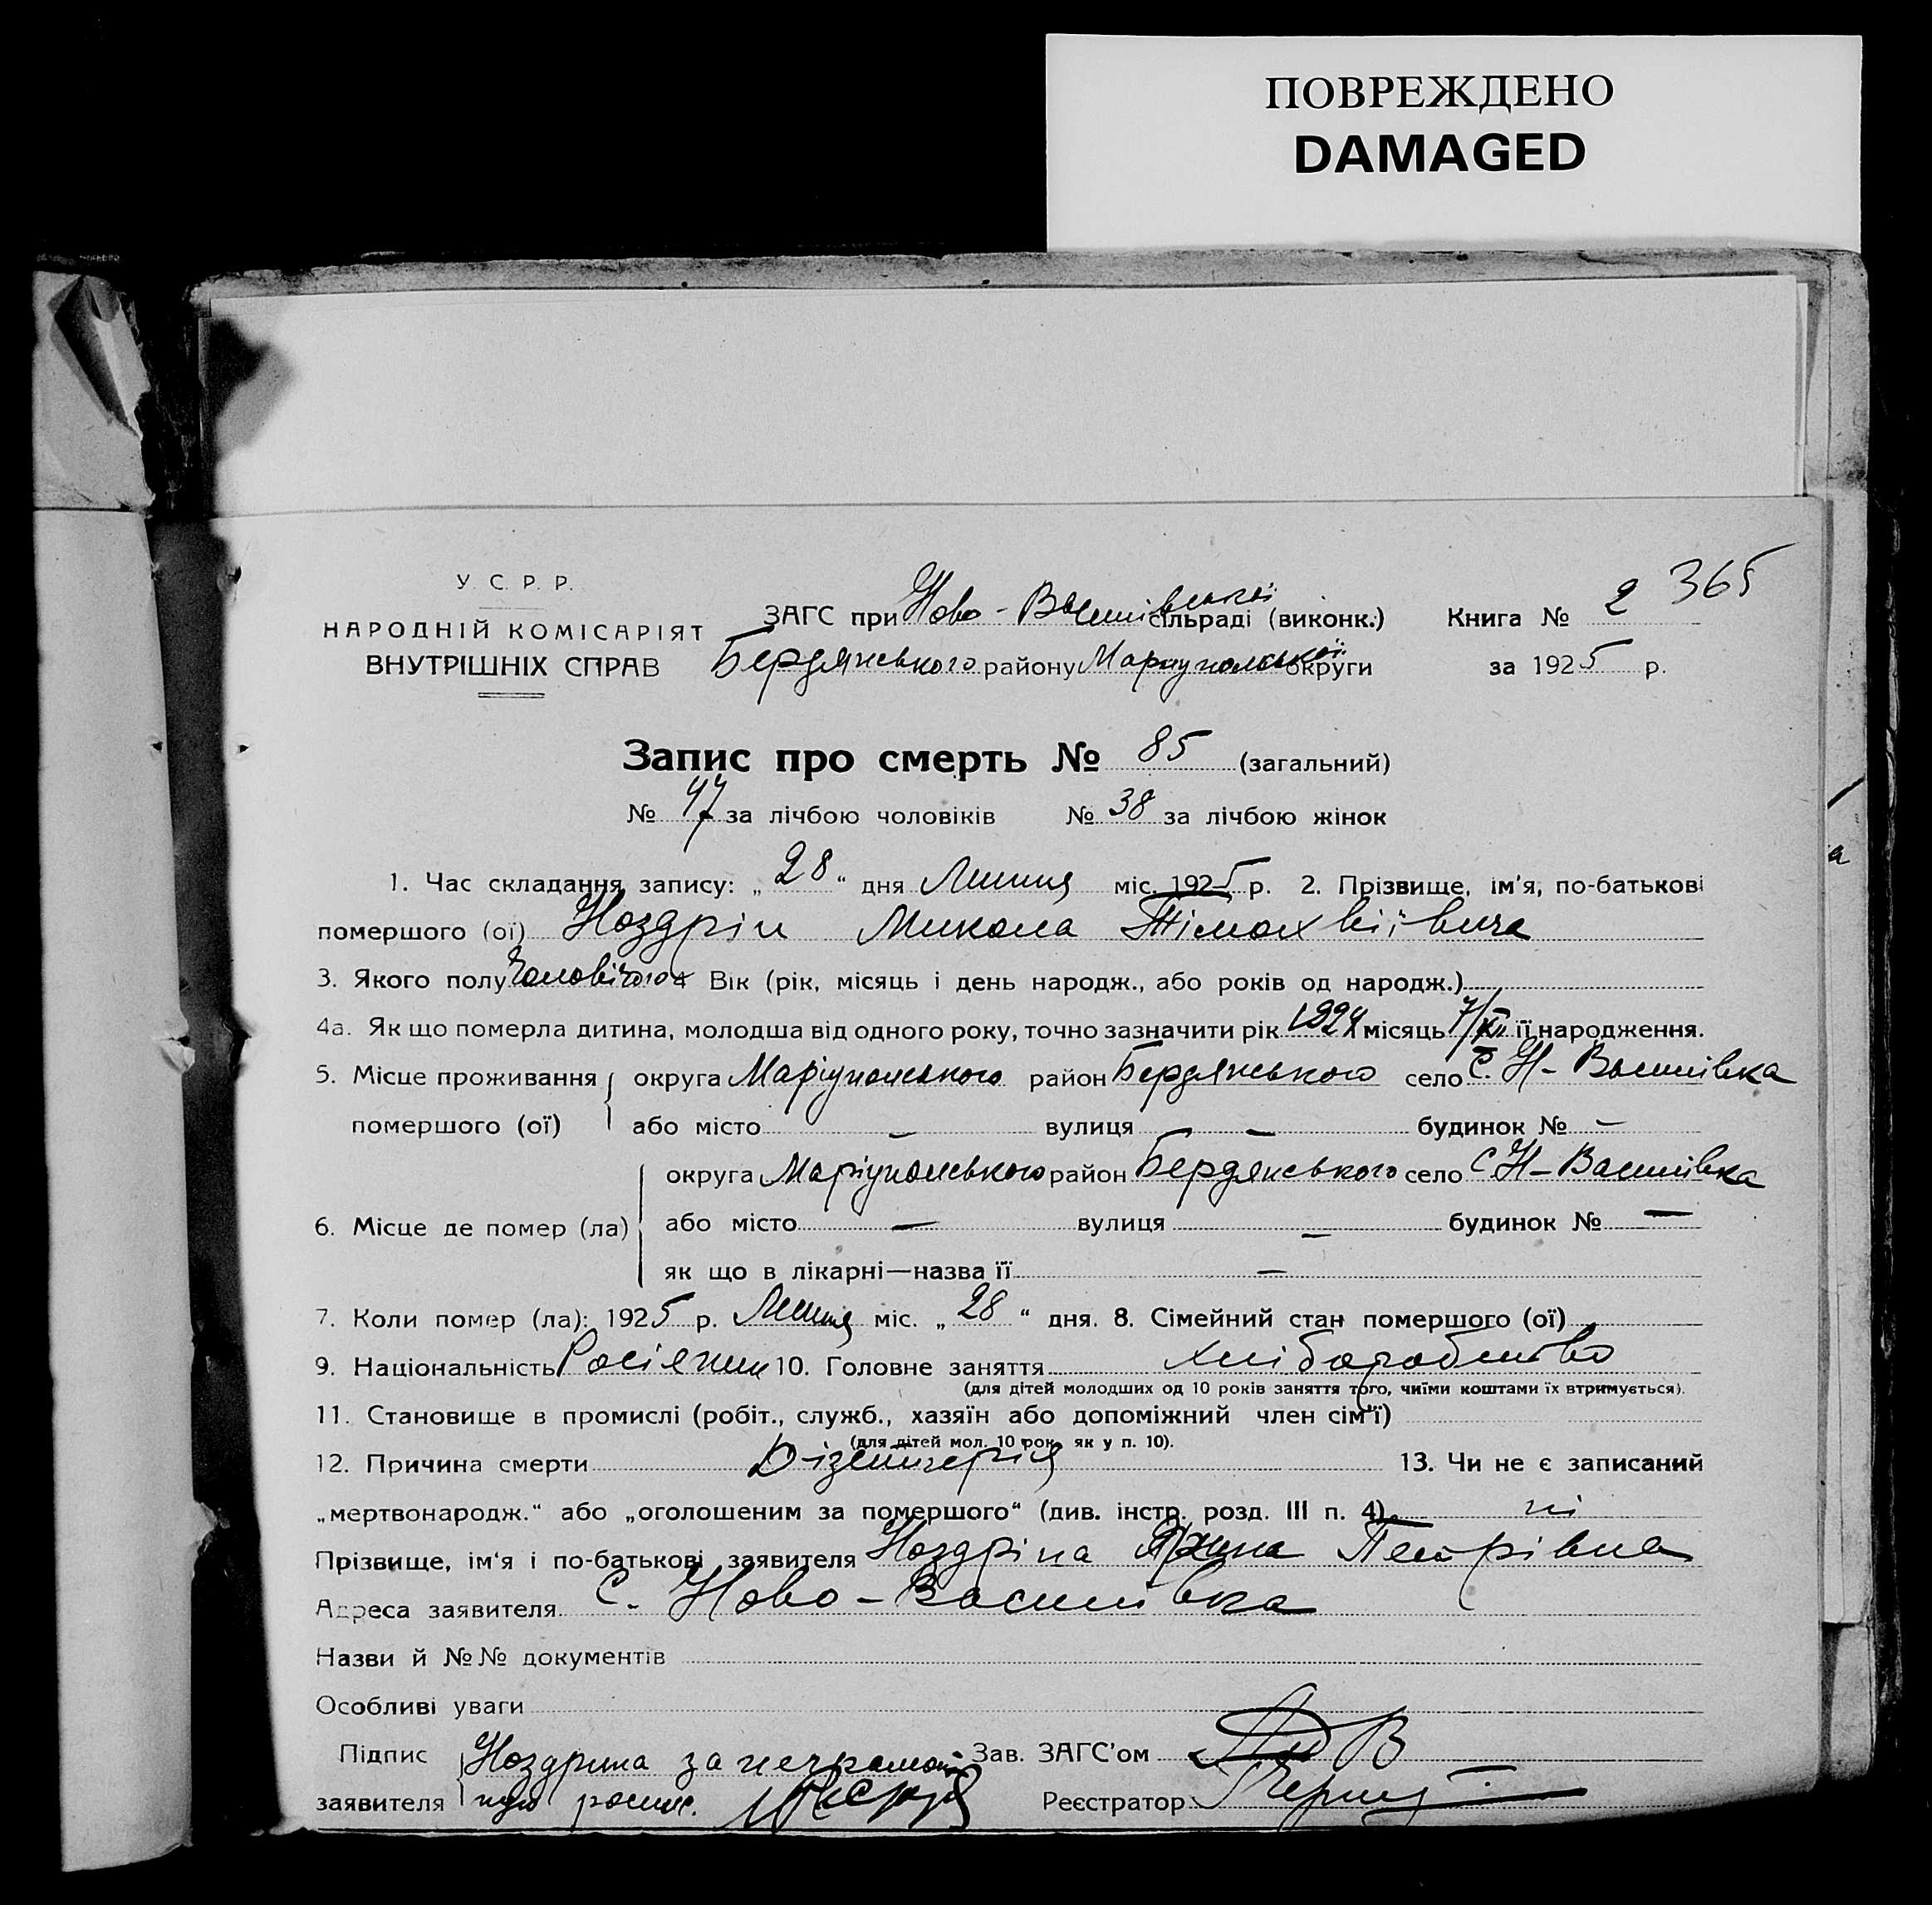 ПОВРЕЖДЕНО
DAMAGED
У. С. Р. Р.
НАРОДНІЙ КОМІСАРІЯТ
ВНУТРІШНІХ СПРАВ
ЗАГС при Ново-Василівській сільраді (виконк.) Книга № 2 365
Бердянського району Маріупольської округи за 1925 р.
Запис про смерть № 85 (загальний)
№ 47 за лічбою чоловіків № 38 за лічбою жінок
1. Час складання запису: „ 28 “ дня Липня міс. 1925 р. 2. Прізвище, ім'я, по-батькові
помершого (ої) Ноздрін Микола Тімохвіївич
3. Якого полу Чоловічого 4 Вік (рік, місяць і день народж., або років од народж.)
4а. Як що померла дитина, молодша від одного року, точно зазначити рік 1924 місяць 7/XII її народження.
5. Місце проживання округа Маріупольського район Бердянського село С. Н-Василівка
помершого (ої) або місто — вулиця — будинок № —
округа Маріупольського район Бердянського село С Н-Василівка
6. Місце де помер (ла) або місто — вулиця — будинок № —
як що в лікарні—назва її —
7. Коли помер (ла): 1925 р. Липня міс. „ 28 “ дня. 8. Сімейний стан помершого (ої)
9. Національність Росіянин 10. Головне заняття хліборобство
(для дітей молодших од 10 років заняття того, чиїми коштами їх втримується).
11. Становище в промислі (робіт., служб., хазяїн або допоміжний член сім'ї)
(для дітей мол. 10 рок. як у п. 10).
12. Причина смерти Дізентерія 13. Чи не є записаний
„мертвонародж.“ або „оголошеним за помершого“ (див. інстр. розд. III п. 4). ні
Прізвище, ім'я і по-батькові заявителя Ноздріна Петрівна
Адреса заявителя С. Ново-Василівка
Назви й №№ документів
Особливі уваги
Підпис Ноздрина за неграмот- Зав. ЗАГС'ом
заявителя ную роспис. Реєстратор